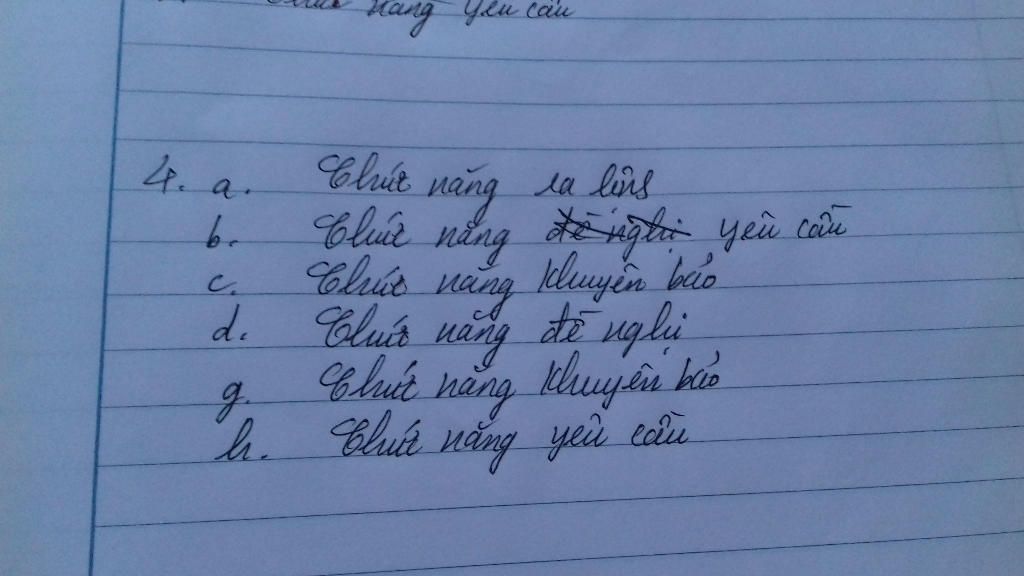 Chức năng yêu cầu
4. a. Chức năng ra lệnh
b. Chức năng đề nghị yêu cầu
c. Chức năng khuyên bảo
d. Chức năng đề nghị
g. Chức năng khuyên bảo
h. Chức năng yêu cầu